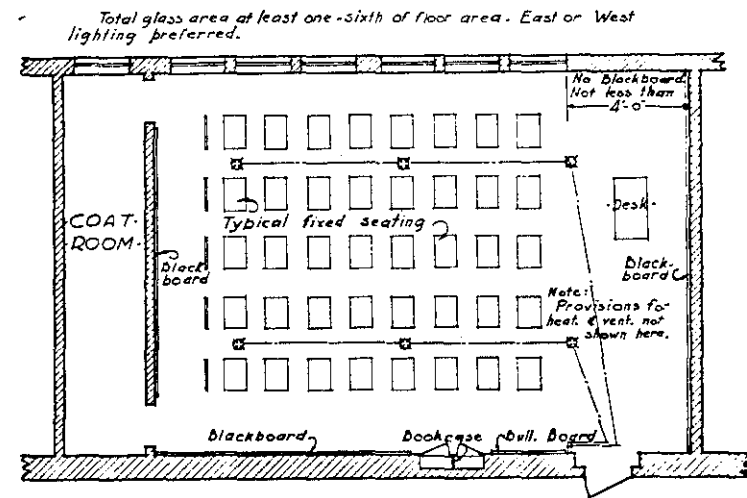 Total glass area at least one-sixth of floor area. East or West
lighting preferred.
No Blackboard
Not less than
4'-0"
COAT
ROOM
Black-
board
Typical fixed seating
Desk
Black-
board
Note:
Provisions for
heat. & vent. not
shown here.
Blackboard
Bookcase
Bull. Board